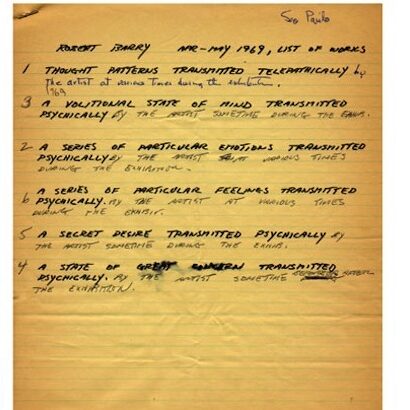 Sao Paulo
ROBERT BARRY APR-MAY 1969, LIST OF WORKS
1 THOUGHT PATTERNS TRANSMITTED TELEPATHICALLY by
the artist at various times during the exhibition.
1969
3 A VOLITIONAL STATE OF MIND TRANSMITTED
PSYCHICALLY BY THE ARTIST SOMETIME DURING THE EXHIB.
2 A SERIES OF PARTICULAR EMOTIONS TRANSMITTED
PSYCHICALLY BY THE ARTIST AT VARIOUS TIMES
DURING THE EXHIBITION.
6 A SERIES OF PARTICULAR FEELINGS TRANSMITTED
PSYCHICALLY. BY THE ARTIST AT VARIOUS TIMES
DURING THE EXHIBIT.
5 A SECRET DESIRE TRANSMITTED PSYCHICALLY BY
THE ARTIST SOMETIME DURING THE EXHIB.
4 A STATE OF GREAT CONCERN TRANSMITTED
PSYCHICALLY. BY THE ARTIST SOMETIME
THE EXHIBITION.